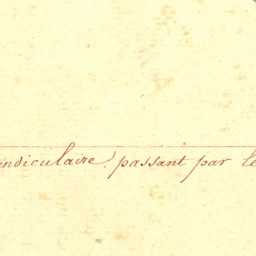 endiculaire passant par le